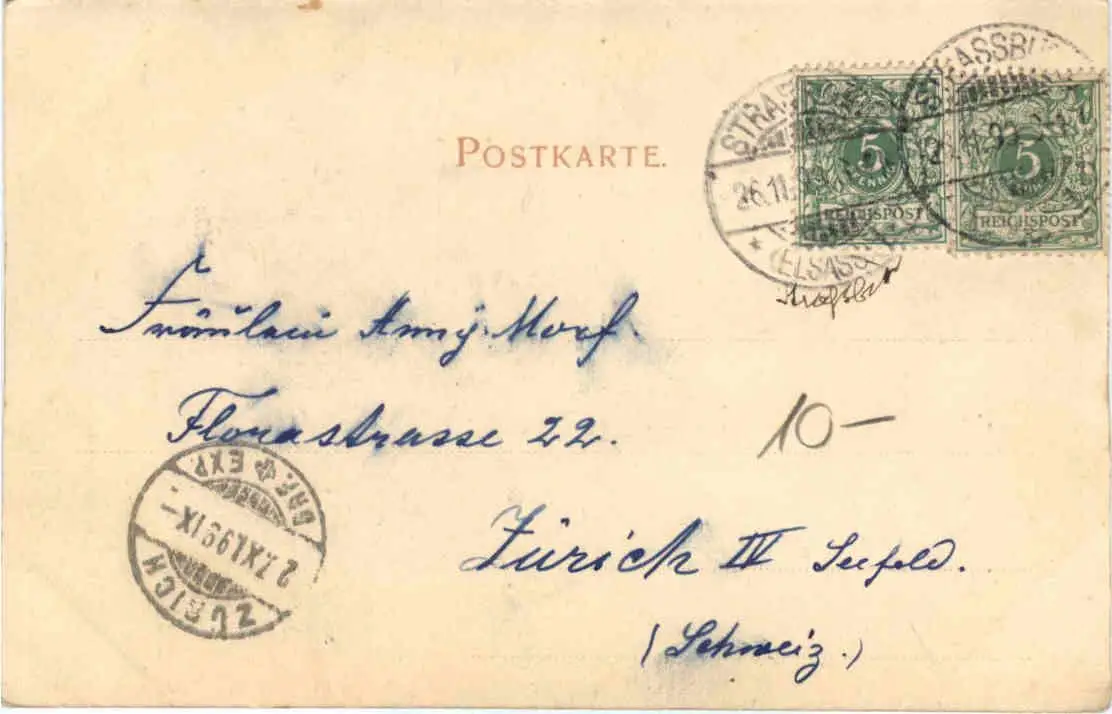 POSTKARTE.
STRASSBURG
26.11.99
* (ELSASS)
STRASSBURG
5
PFENNIG
REICHSPOST
5
PFENNIG
REICHSPOST
Fräulein Anny Morf.
Florastrasse 22.
10-
Zürich IV Seefeld.
(Schweiz.)
ZÜRICH
27.XI.99 IX-
BRF. EXP.